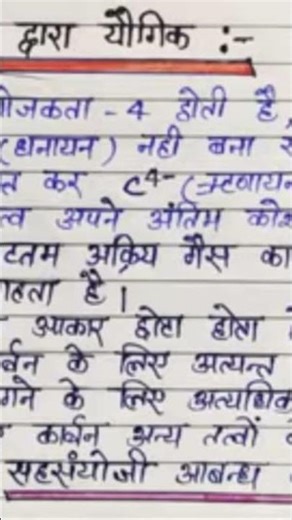 द्वारा यौगिक :-
ोजकता - 4 होती है,
(धनायन) नही बना स
त कर C⁴⁻ (ऋणायन
त्व अपने अंतिम कोश
टतम अक्रिय गैस का
ाहता है।
आकार छोटा होता
र्बन के लिए अत्यन्त
गने के लिए अत्यधिक
कार्बन अन्य तत्वों
सहसंयोजी आबन्ध